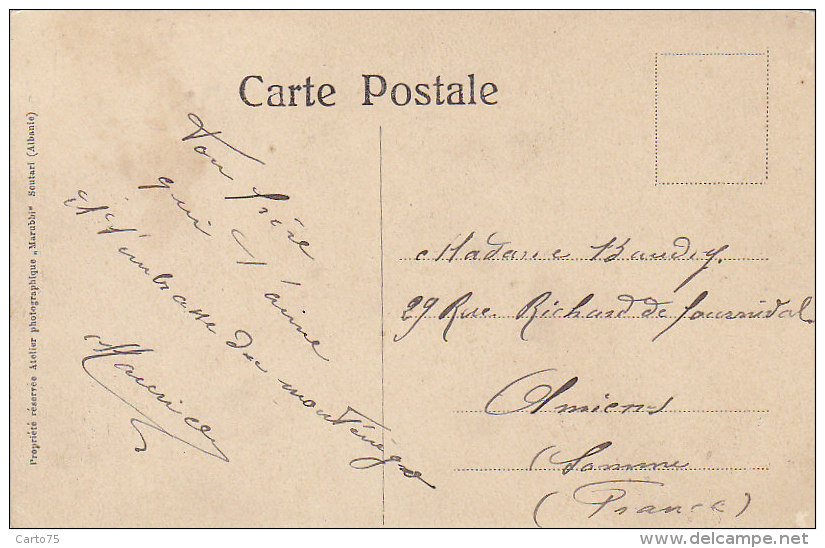 Carte Postale
Propriété réservée Atelier photographique „Marubbi" Scutari (Albanie)
Ton frère
qui t'aime
et t'embrasse du monténégro
Maurice
Madame Baudry.
29 Rue Richard de Fournival
Amiens
(Somme
(France)
Carto75
www.delcampe.net